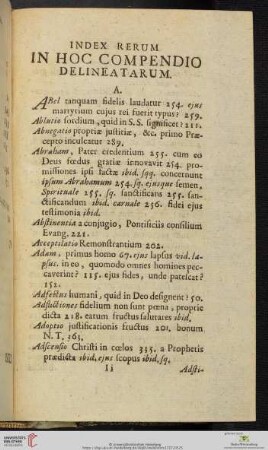 INDEX RERUM
IN HOC COMPENDIO
DELINEATARUM.
A.
ABel tanquam fidelis laudatur 254. ejus
martyrium cujus rei fuerit typus? 259.
Ablutio sordium, quid in S.S. significet? 211.
Abnegatio propriæ justitiæ, &c. primo Præ-
cepto inculcatur 289.
Abraham, Pater credentium 255. cum eo
Deus fœdus gratiæ innovavit 254. pro-
missiones ipsi factæ ibid. sqq. concernunt
ipsum Abrahamum 254. sq. ejusque semen,
Spirituale 255. sq. sanctificans 255. san-
ctificandum ibid. carnale 256. fidei ejus
testimonia ibid.
Abstinentia a conjugio, Pontificiis consilium
Evang. 221.
Acceptilatio Remonstrantium 202.
Adam, primus homo 67. ejus lapsus vid. la-
psus. in eo, quomodo omnes homines pec-
caverint? 115. ejus fides, unde pateat?
152.
Adfectus humani, quid in Deo designent? 50.
Adflictiones fidelium non sunt pœna, proprie
dicta 218. earum fructus salutares ibid.
Adoptio justificationis fructus 201. bonum
N. T. 363.
Adscensio Christi in cœlos 335. a Prophetis
prædicta ibid. ejus scopus ibid. sq.
Ii Adsti-